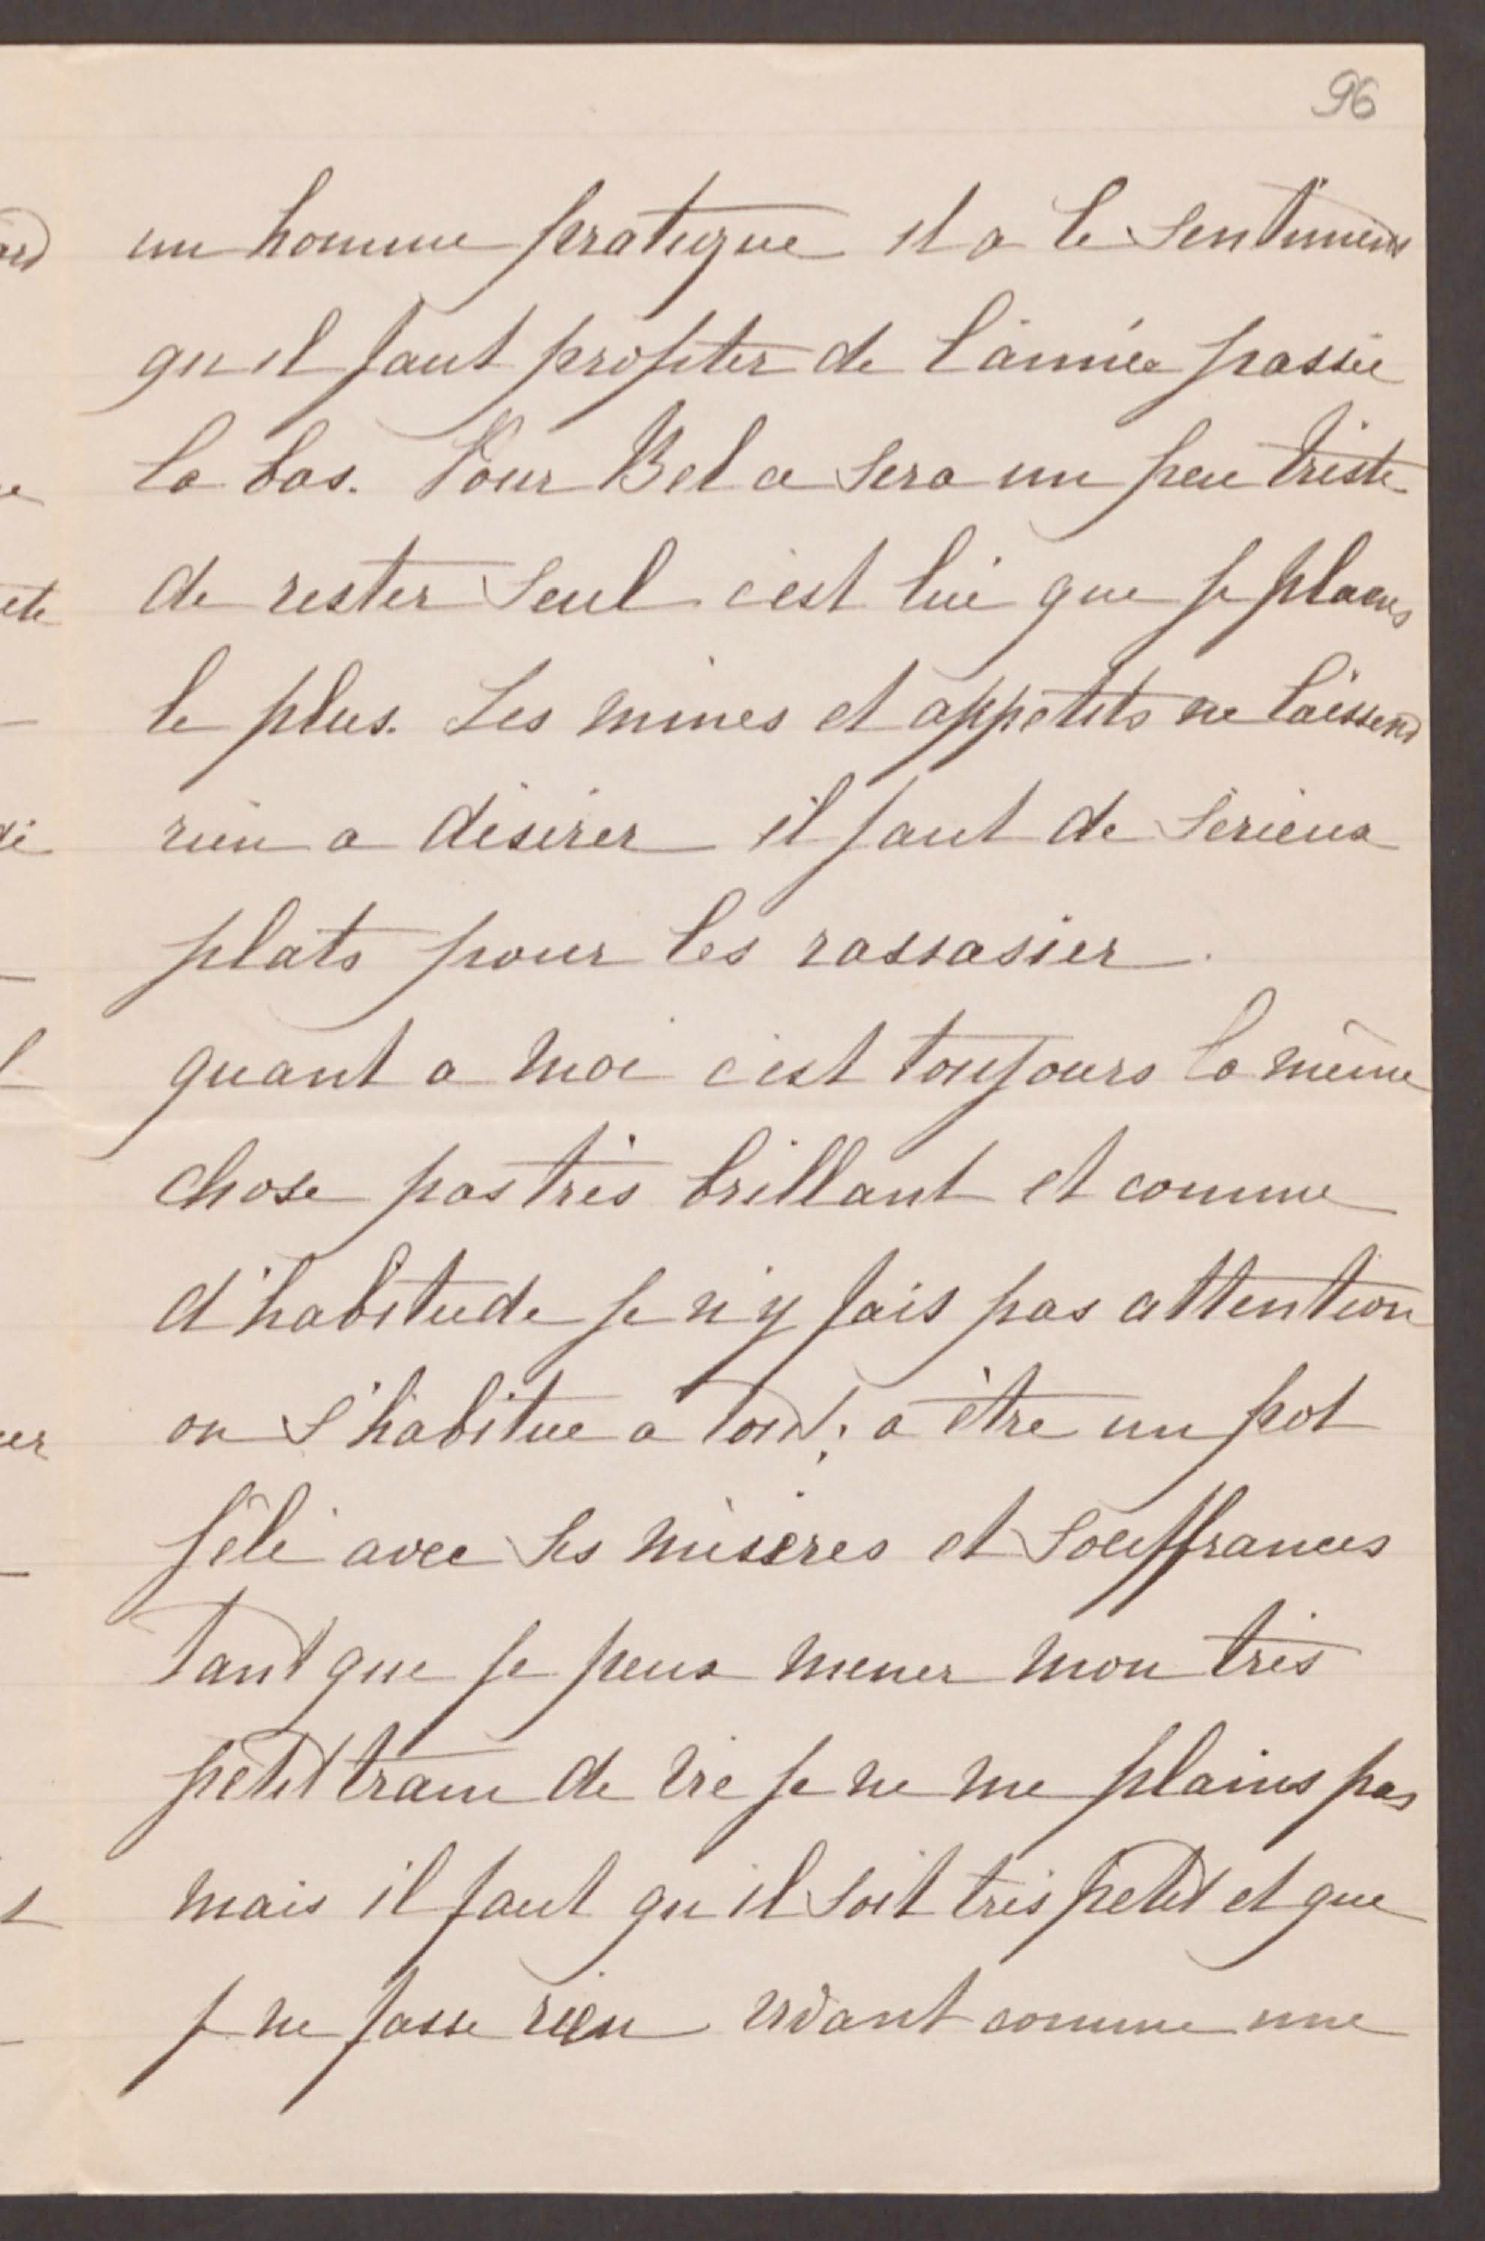 96
un homme pratique il a le sentiment
qu il faut profiter de l'année passée
la bas. Pour Bel ce sera un peu triste
de rester seul c'est lui que je plains
le plus. Les mines et appetits ne laissent
rien a désirer il faut de serieux
plats pour les rassasier.
quant a moi c'est toujours la même
chose pas très brillant et comme
d'habitude je n'y fais pas attention
on s'habitue a tout; a être un pot
fêlé avec ses misères et souffrances
Tant que je peux mener mon très
petit train de vie je ne me plains pas
mais il faut qu il soit très petit et que
je ne fasse rien vivant comme une